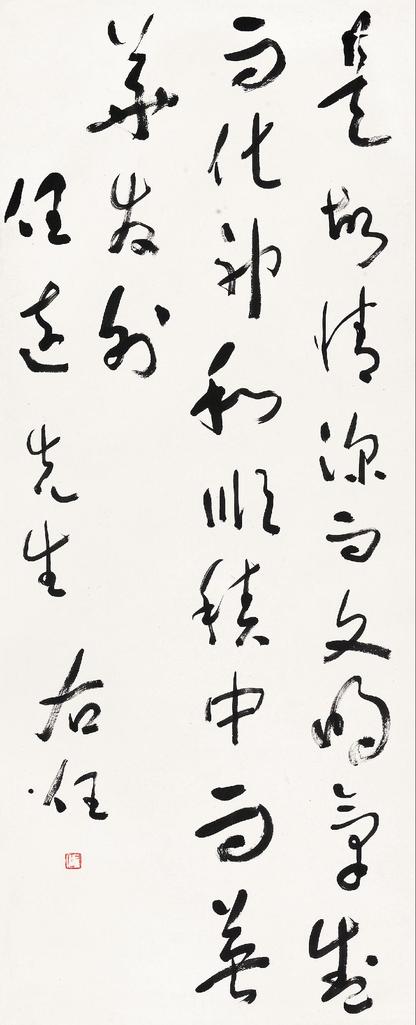 是故情深而文明氣盛
而化神和順積中而英
華發外
任遠先生
右任